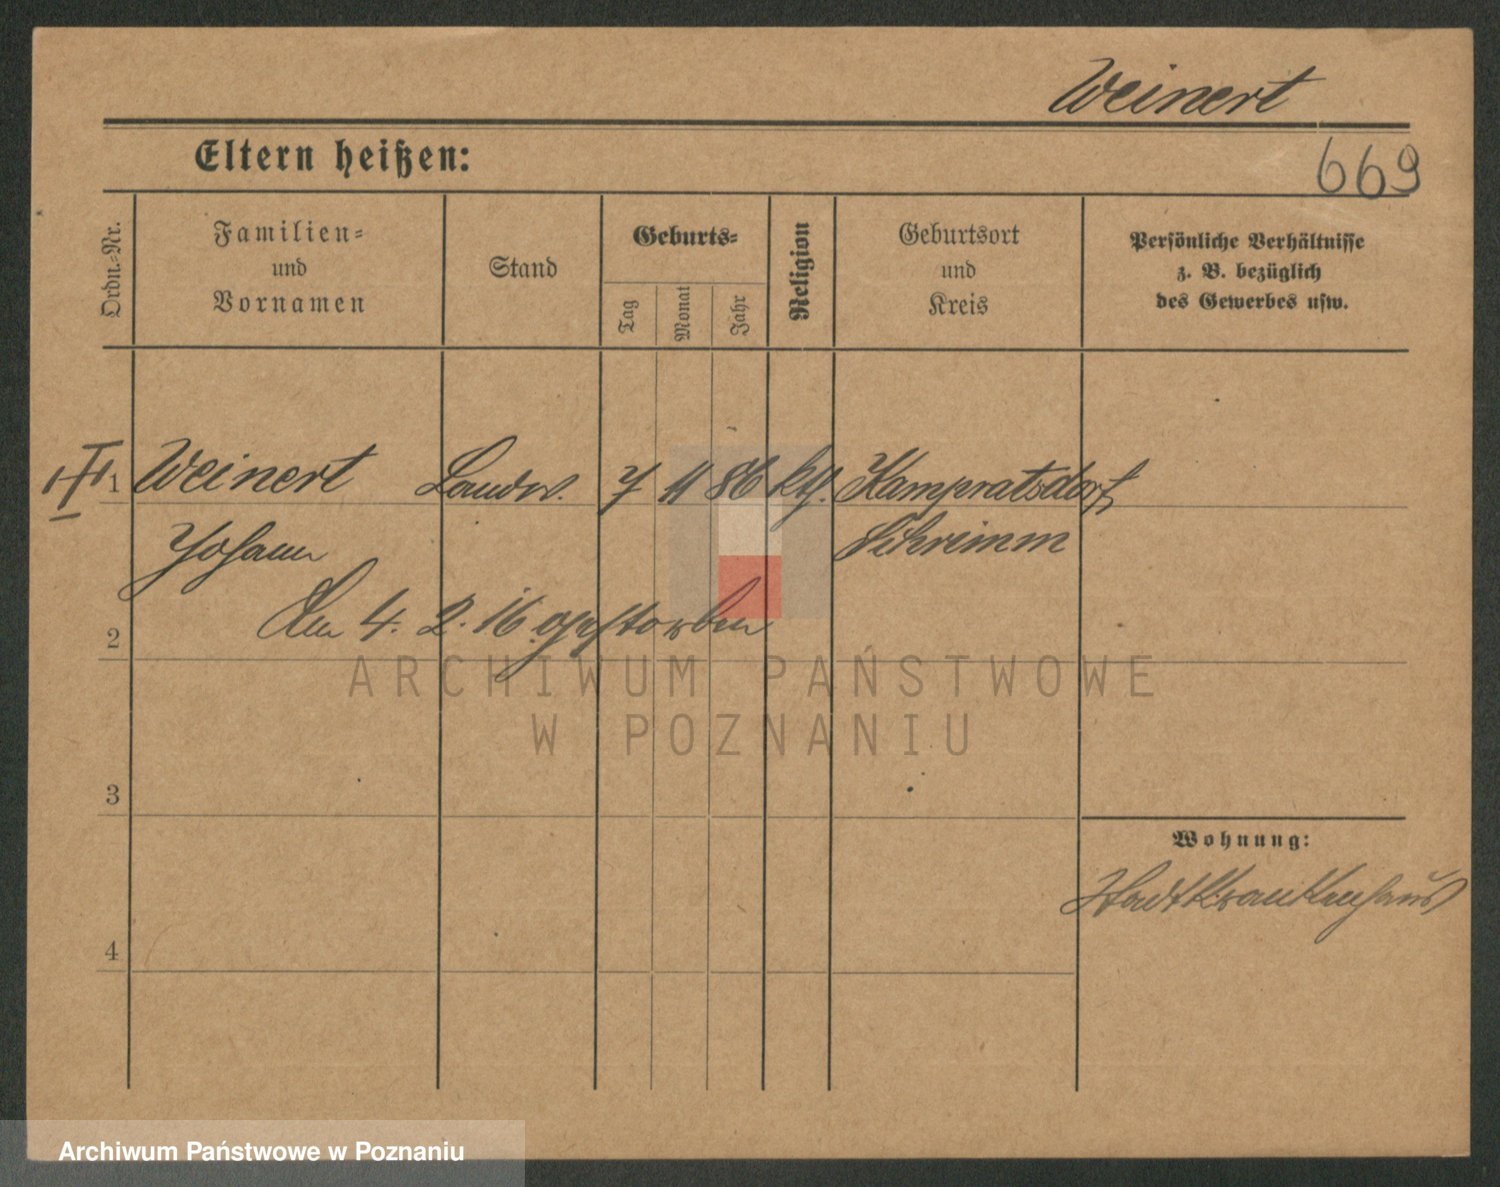 Weinert
Eltern heißen:
669
Ordn.-Nr.
Familien-
und
Vornamen
Stand
Geburts-
Tag
Monat
Jahr
Religion
Geburtsort
und
Kreis
Persönliche Verhältnisse
z. B. bezüglich
des Gewerbes usw.
1 Weinert Landw. 7 11 86 kth. Kampratsdorf
Johann Schrimm
Am 4. 2. 16 gestorben
2
ARCHIWUM PAŃSTWOWE
W POZNANIU
3
Wohnung:
Stadtkrankenhaus
4
Archiwum Państwowe w Poznaniu